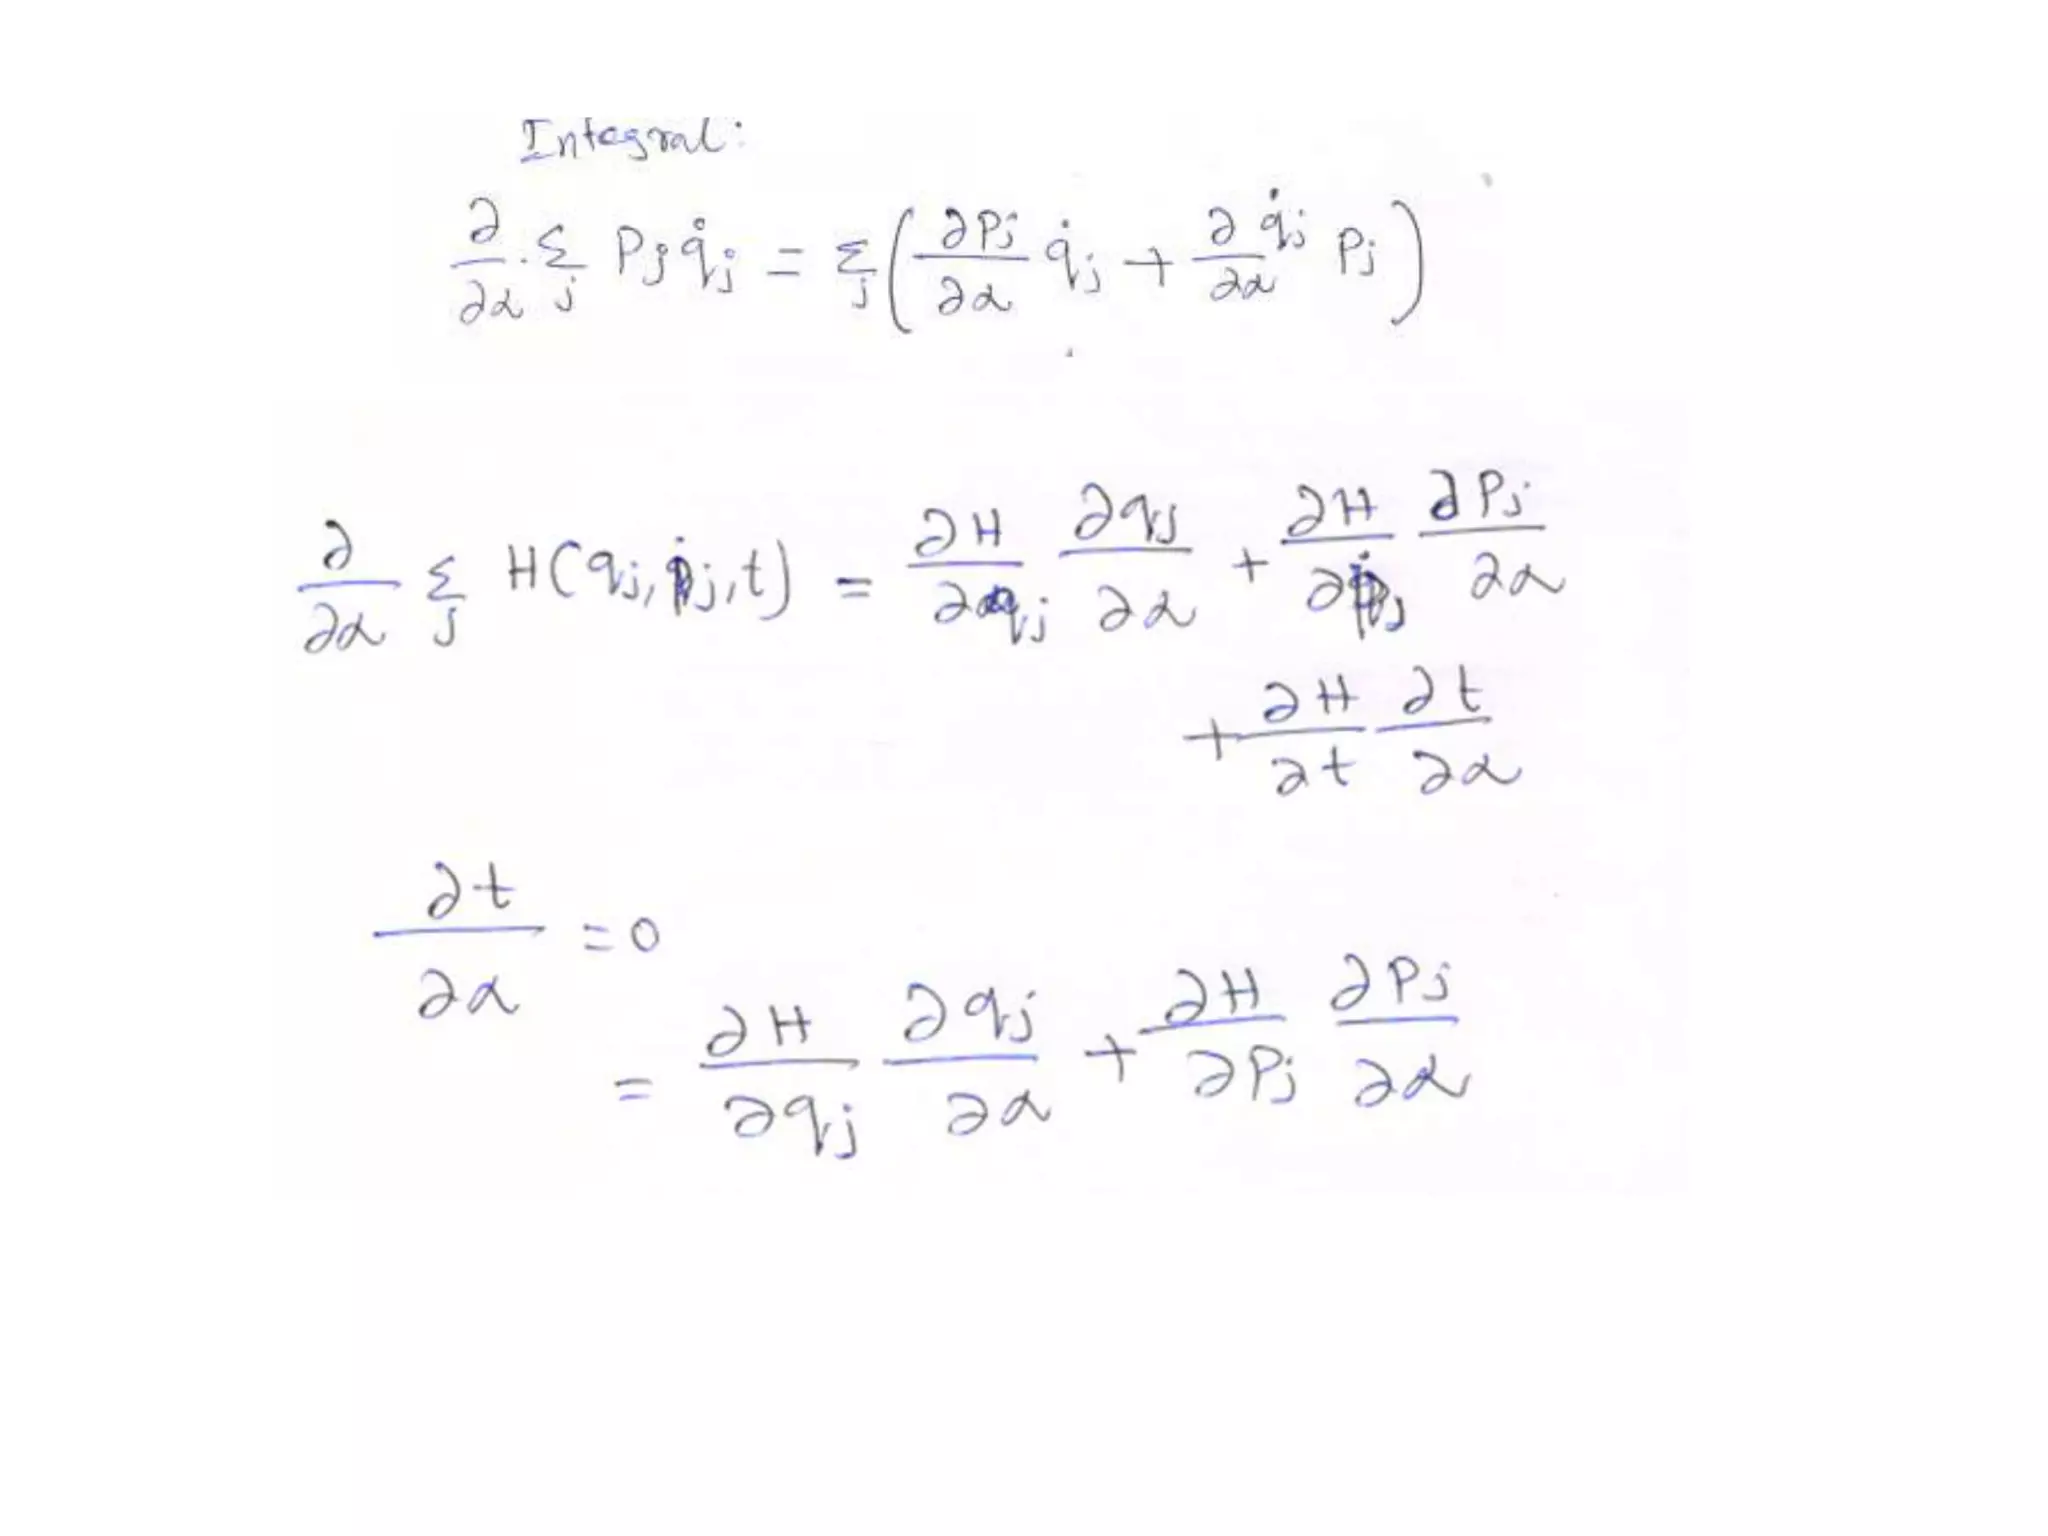 Integral:
∂/∂α · Σ_j P_j q̇_j = Σ_j ( ∂P_j/∂α q̇_j + ∂q̇_j/∂α P_j )
∂/∂α Σ_j H(q_j, p_j, t) = ∂H/∂q_j ∂q_j/∂α + ∂H/∂p_j ∂P_j/∂α
+ ∂H/∂t ∂t/∂α
∂t/∂α = 0
= ∂H/∂q_j ∂q_j/∂α + ∂H/∂P_j ∂P_j/∂α